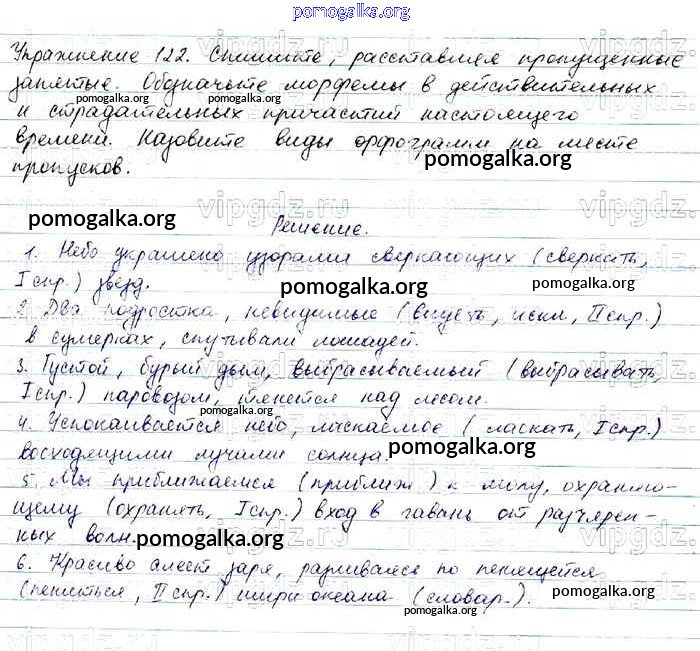 pomogalka.org
Упражнение 122. Спишите, расставляя пропущенные
запятые. Обозначьте морфемы в действительных
pomogalka.org pomogalka.org
и страдательных причастий настоящего
времени. Назовите виды орфограмм на месте
pomogalka.org
пропусков.
pomogalka.org
Решение.
1. Небо украшено узорами сверкающих (сверкать,
I спр.) звёзд.
pomogalka.org
2. Два подростка, невидимые (видеть, искл, II спр.)
в сумерках, спутывали лошадей.
3. Густой, бурый дым, выбрасываемый (выбрасывать,
I спр.) паровозом, тянется над лесом.
pomogalka.org
4. Успокаивается небо, ласкаемое (ласкать, I спр.)
восходящими лучами солнца.
pomogalka.org
5. Мы приближаемся (приближ ) к молу, охраняю-
щему (охранять, I спр.) вход в гавань от разъярен-
ных волн.
pomogalka.org
6. Красиво алеет заря, разливаясь по пенящейся
(пениться, II спр.) шири океана (словар.).
pomogalka.org pomogalka.org